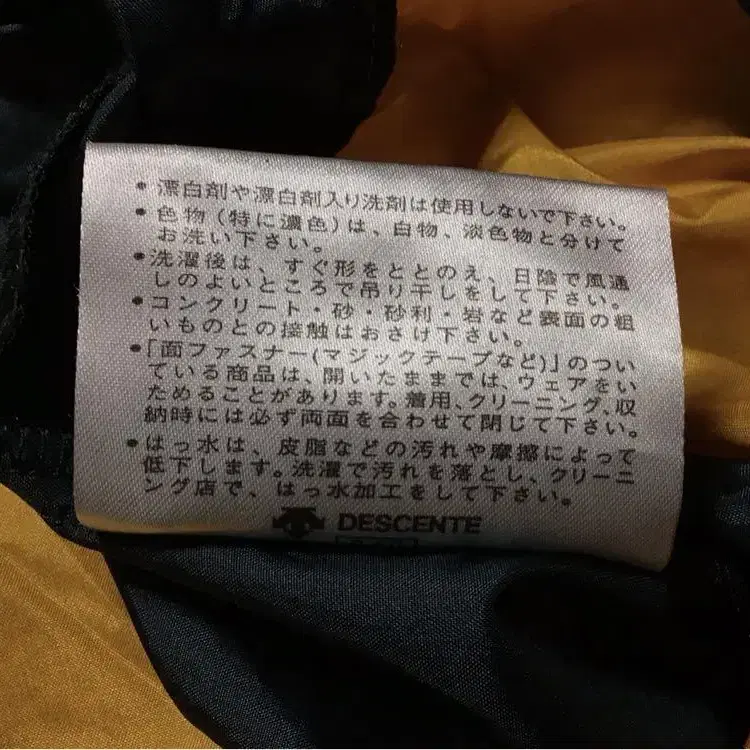 ・漂白剤や漂白剤入り洗剤は使用しないで下さい。
・色物(特に濃色)は、白物、淡色物と分けて
お洗い下さい。
・洗濯後は、すぐ形をととのえ、日陰で風通
しのよいところで吊り干しをして下さい。
・コンクリート・砂・砂利・岩など表面の粗
いものとの接触はおさけ下さい。
・「面ファスナー(マジックテープなど)」のつい
ている商品は、開いたままでは、ウェアをい
ためることがあります。着用、クリーニング、収
納時には必ず両面を合わせて閉じて下さい。
・はっ水は、皮脂などの汚れや摩擦によって
低下します。洗濯で汚れを落とし、クリーニ
ング店で、はっ水加工をして下さい。
DESCENTE